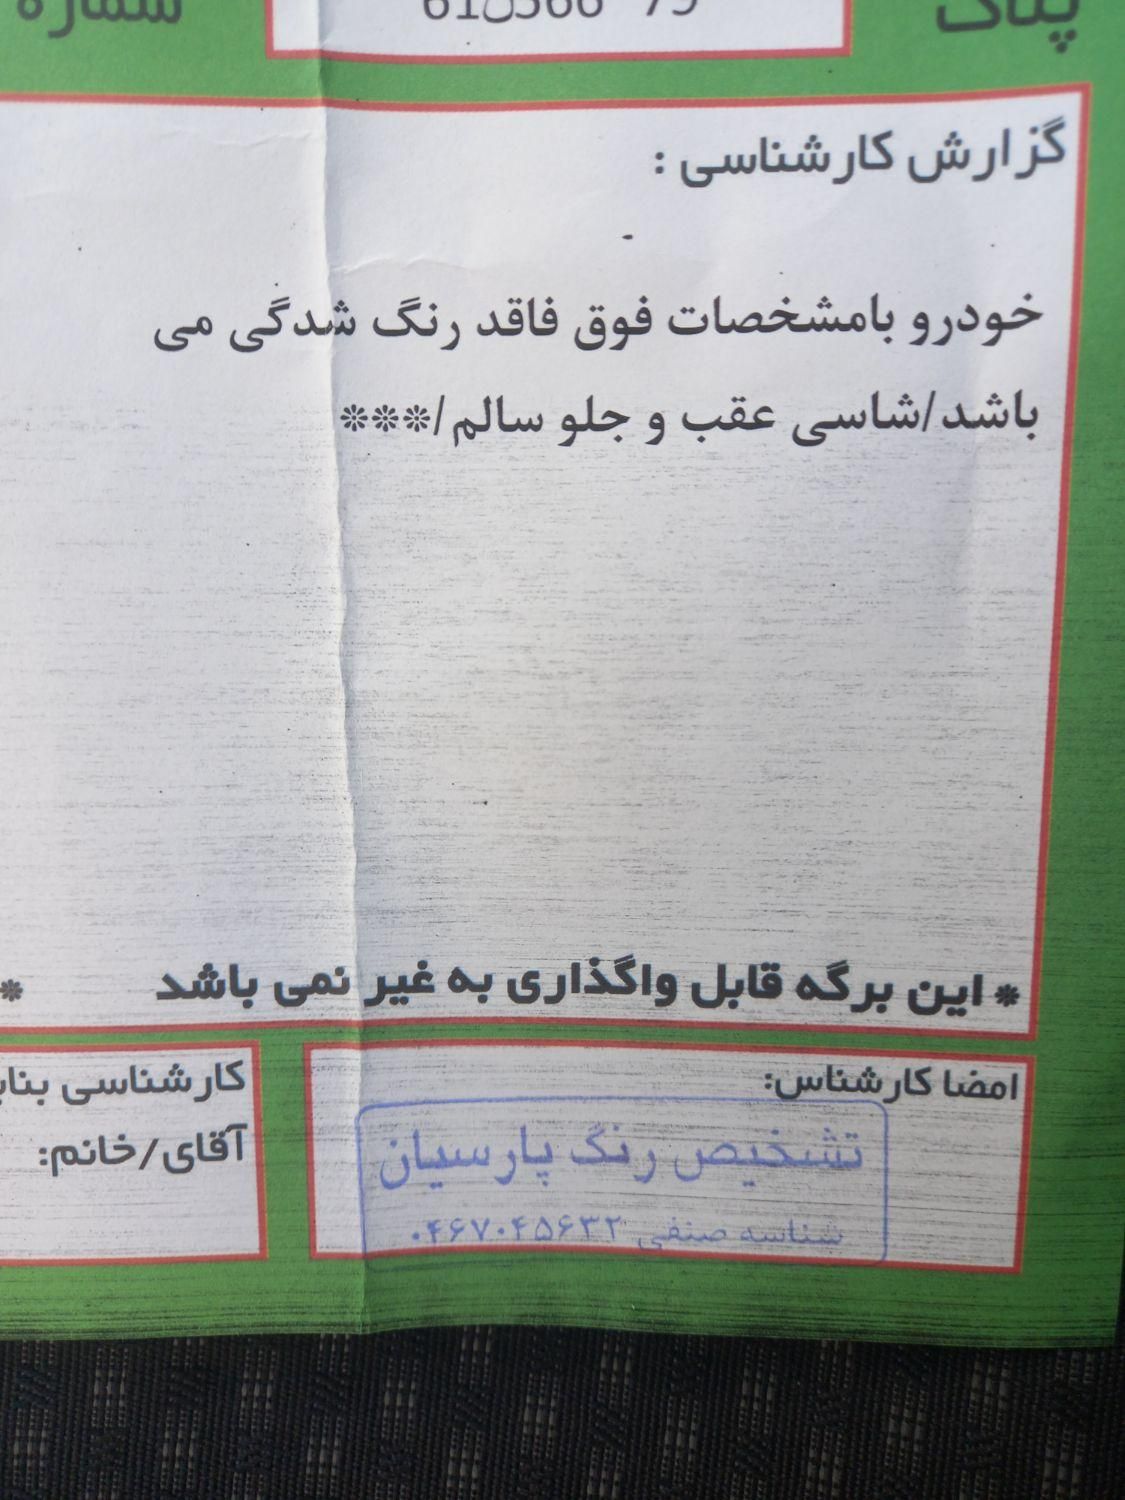 پلاک
شماره
گزارش کارشناسی :
خودرو بامشخصات فوق فاقد رنگ شدگی می
باشد/شاسی عقب و جلو سالم/***
* این برگه قابل واگذاری به غیر نمی باشد *
امضا کارشناس:
تشخیص رنگ پارسیان
شناسه صنفی ۰۴۶۷۰۴۵۶۳۲
کارشناسی
آقای/خانم: